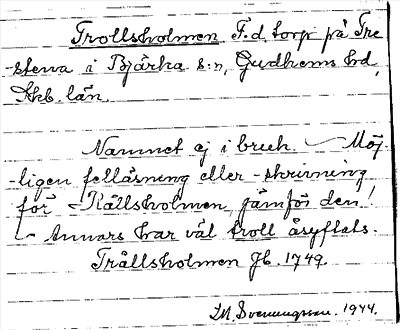 Trollsholmen F.d. torp på Tre-
-stena i Bjärka s:n, Gudhems hd,
Skb. län.
Namnet ej i bruk. — Möj-
-ligen felläsning eller -skrivning
för Källsholmen, jämför den!
— Annars har väl troll åsyftats.
Trållsholmen Jb. 1749.
I.M. Svenungsson. 1944.